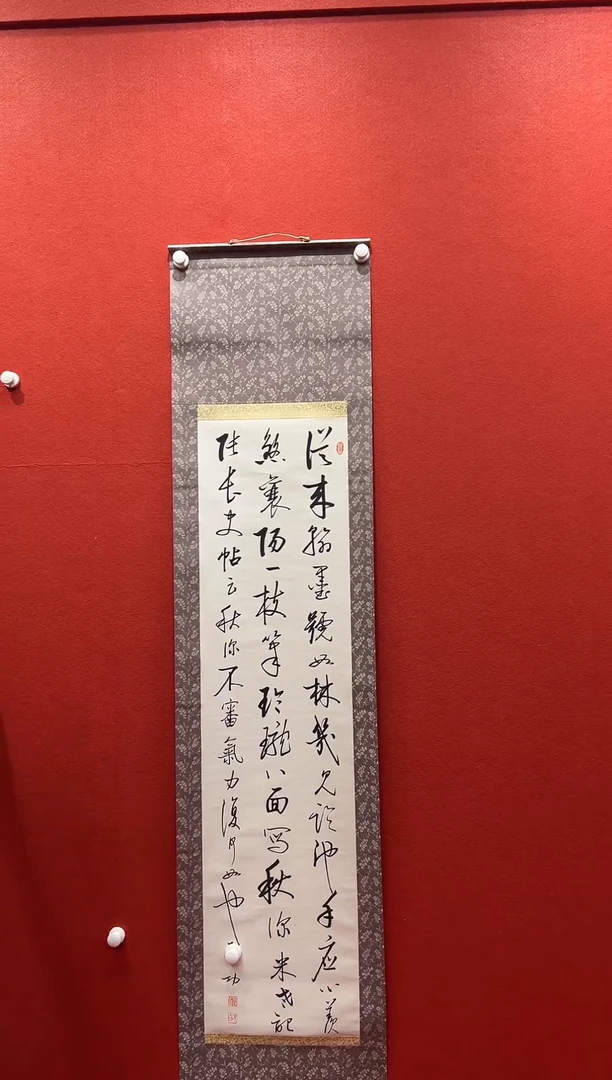 从来翰墨号如林几见临池手应心羡
煞襄阳一枝笔玲珑八面写秋深米老记
张长史帖云秋深不審氣力復何如也
功